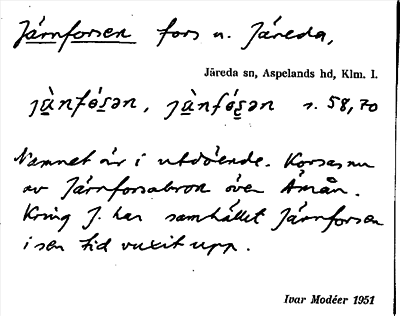 Järnforsen fors n. Järeda,
Järeda sn, Aspelands hd, Klm. l.
jä̀nfó̤s̲ən, jä̀nfó̤s̲ən s. 58, 70
Namnet är i utdöende. Korsas nu
av Järnforsabron över Åmån.
Kring J. har samhället Järnforsen
i sen tid vuxit upp.
Ivar Modéer 1951